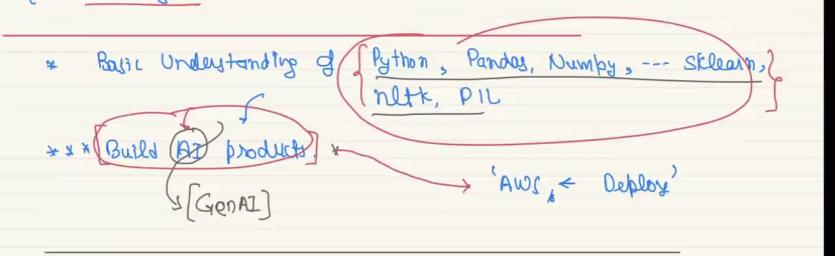 * Basic Understanding of { Python, Pandas, Numpy, --- sklearn,
nltk, PIL }
*** [Build AI products.] *
'AWS, ← Deploy'
[GenAI]